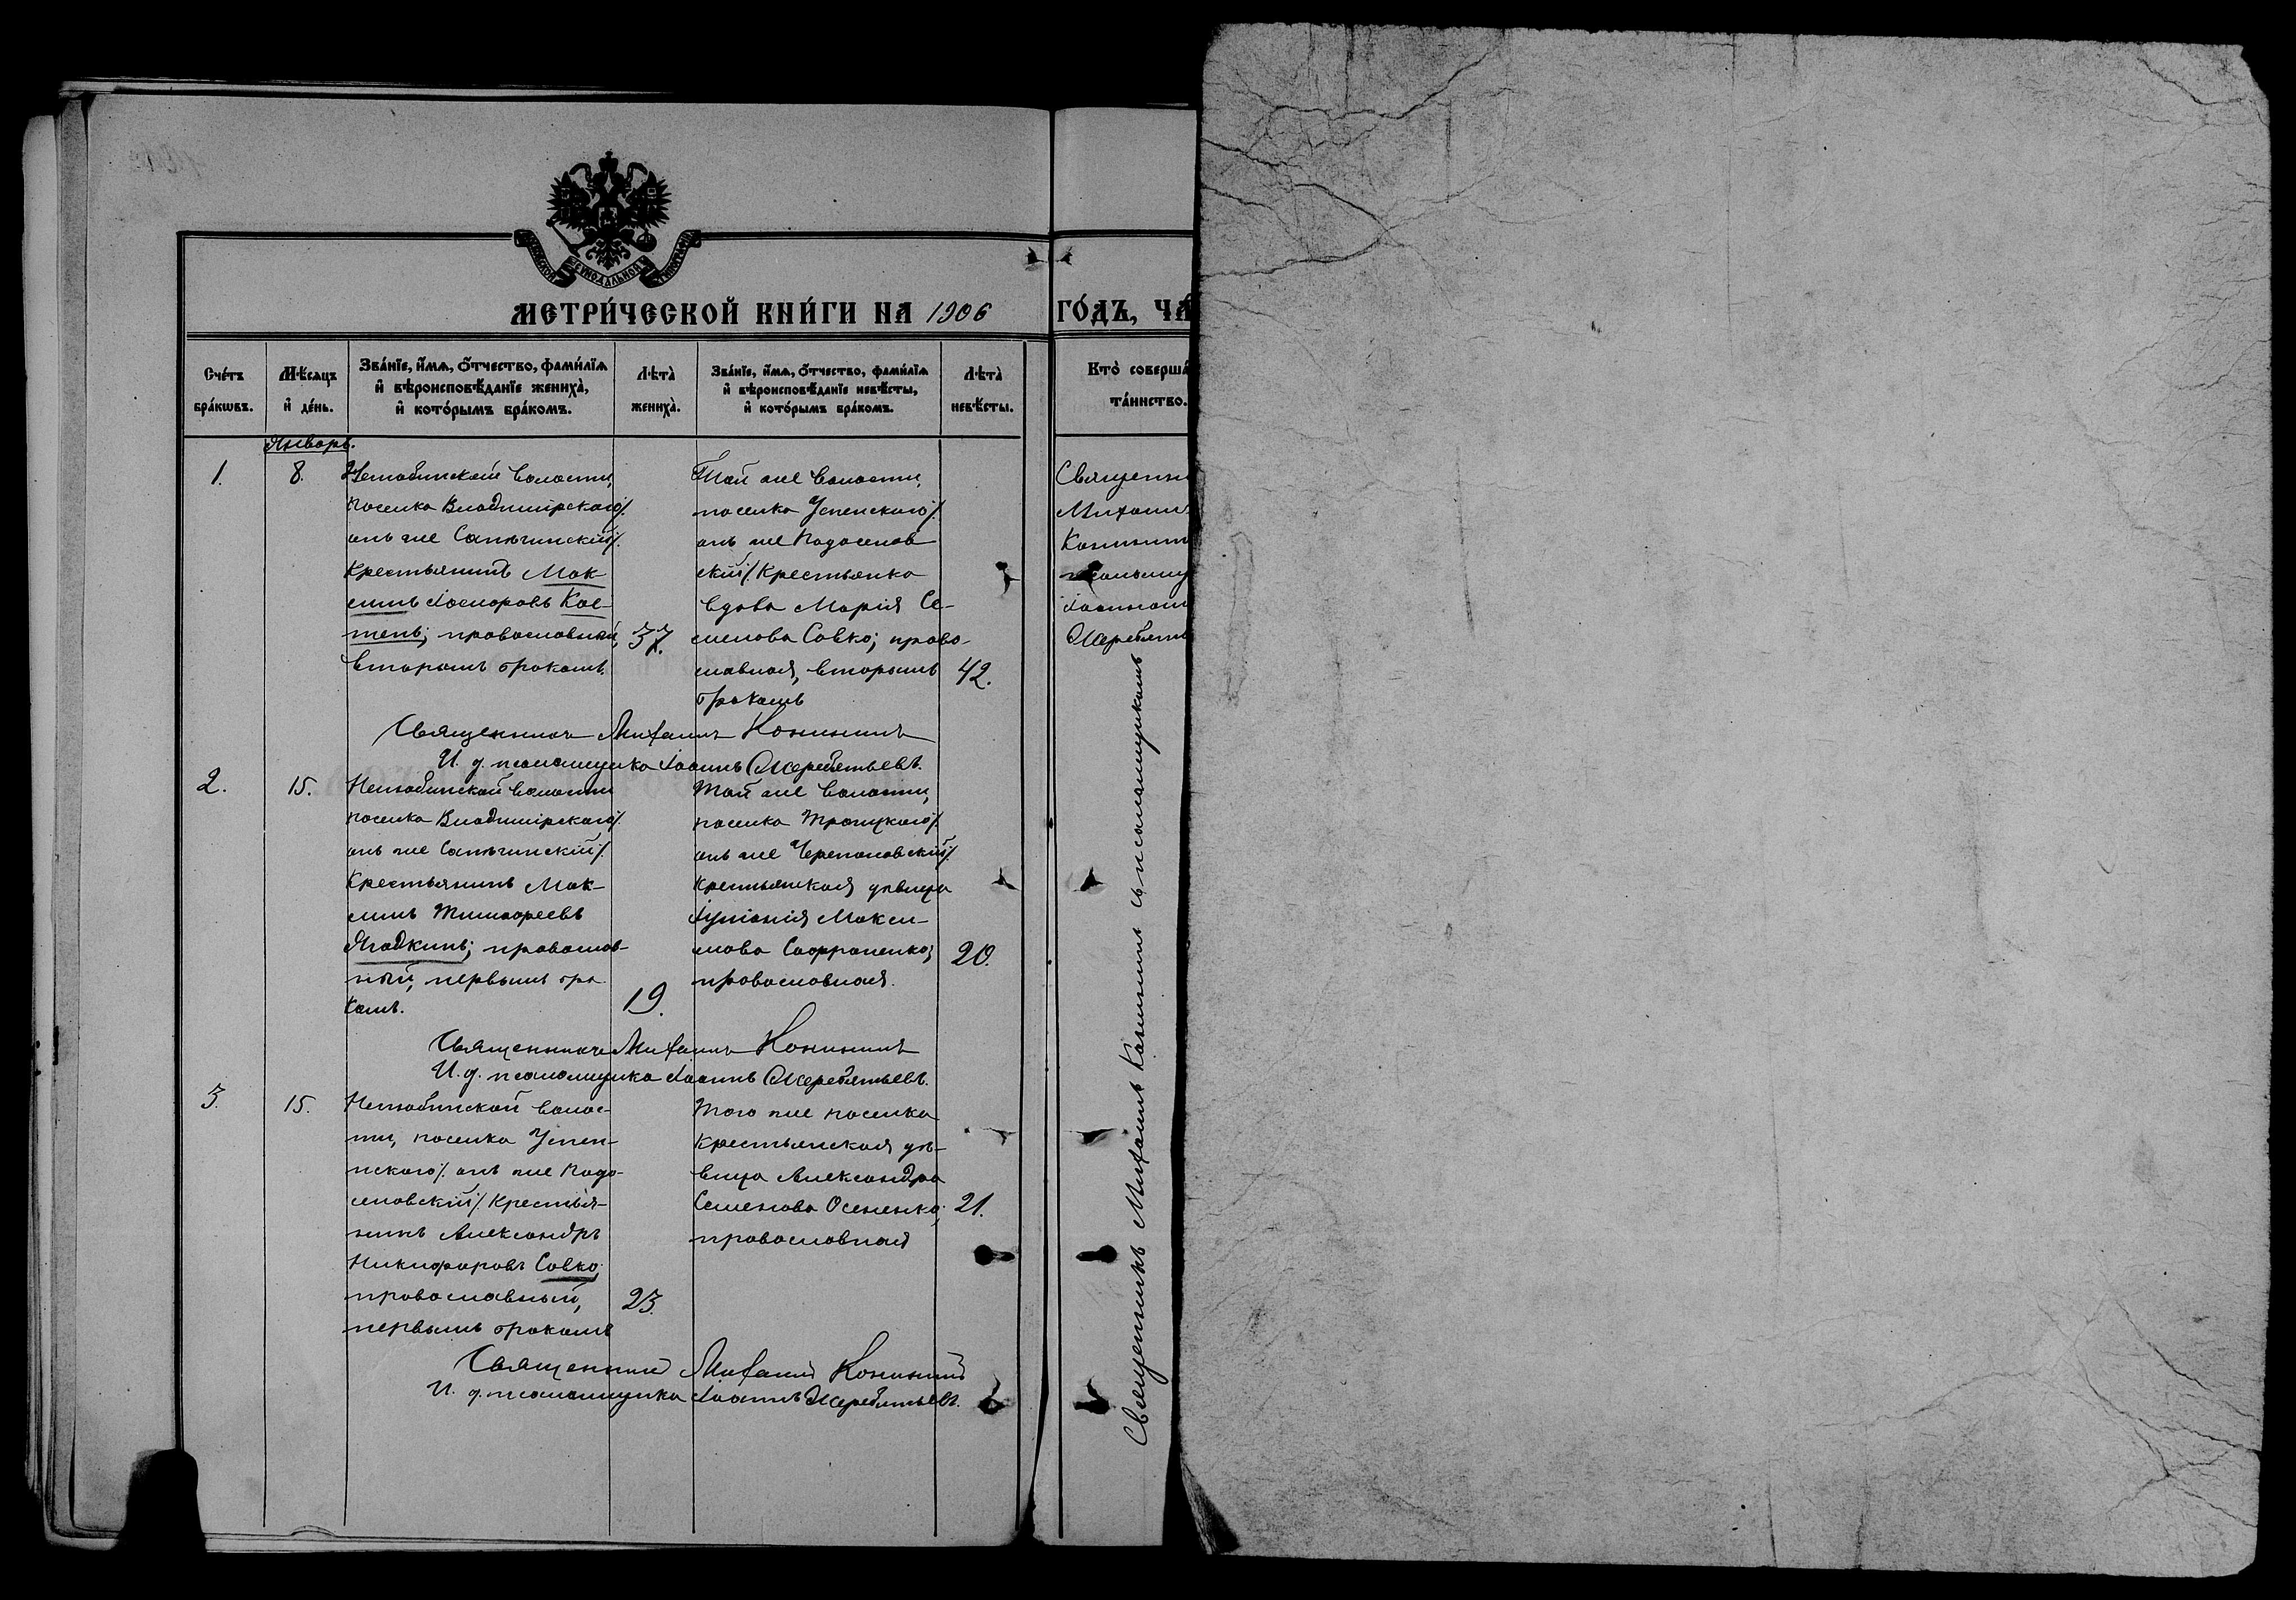 МОСКОВСКОЙ СѴНОДАЛЬНОЙ ТИПОГРАФІИ
МЕТРИ́ЧЕСКОЙ КНИ́ГИ НА 1906
ГО́ДЪ, ЧА́
Сче́тъ бра́кѡвъ.
Мѣ́сяцъ и҆ де́нь.
Зва́нїе, и҆́мѧ, ѻ҆́тчество, фами́лїѧ
и҆ вѣроисповѣ́данїе жениха̀,
и҆ кото́рымъ бра́комъ.
Лѣта̀ жениха̀.
Зва́нїе, и҆́мѧ, ѻ҆́тчество, фами́лїѧ
и҆ вѣроисповѣ́данїе невѣ́сты,
и҆ кото́рымъ бра́комъ.
Лѣта̀ невѣ́сты.
Кто̀ соверша́
та́инство.
Январь.
1.
8.
Нетюбинской волости,
поселка Владимірскаго/.
онъ же Сапѣгинскій/.
Крестьянинъ Мак-
симъ Іосифовъ Кос-
тень; православный,
вторымъ бракомъ.
37.
Той же волости,
поселка Успенскаго/.
онъ же Подосенов
скій/. Крестьянка
вдова Марія Се-
менова Савко; право-
славная, вторымъ
бракомъ
42.
Священникъ Михаилъ Конининъ
И. д. псаломщика Іоаннъ Жеребятьевъ.
2.
15.
Нетюбинской волости
поселка Владимірскаго/.
онъ же Сапѣгинскій/.
Крестьянинъ Мак-
симъ Тимофеевъ
Ягодкинъ; православ-
ный, первымъ бра
комъ.
19.
Той же волости,
поселка Троицкаго/.
онъ же Черепановскій/.
Крестьянская дѣвица
Іуліанія Макси-
мова Сафроненко;
православная.
20.
Священникъ Михаилъ Конининъ
И. д. псаломщика Іоаннъ Жеребятьевъ.
3.
15.
Нетюбинской волос-
ти, поселка Успен-
нскаго/. онъ же Подо-
сеновскій/. Крестья-
нинъ Александръ
Никифоровъ Савко;
православный,
первымъ бракомъ
23.
Того же поселка
Крестьянская дѣ-
вица Александра
Семенова Осененко;
православная
21.
Священникъ Михаилъ Конининъ
И. д. псаломщика Іоаннъ Жеребятьевъ.
Священни
Михаил
Конинин
псаломщ
Іоанном
Жеребять
Священникъ Михаилъ Конининъ съ псаломщикомъ